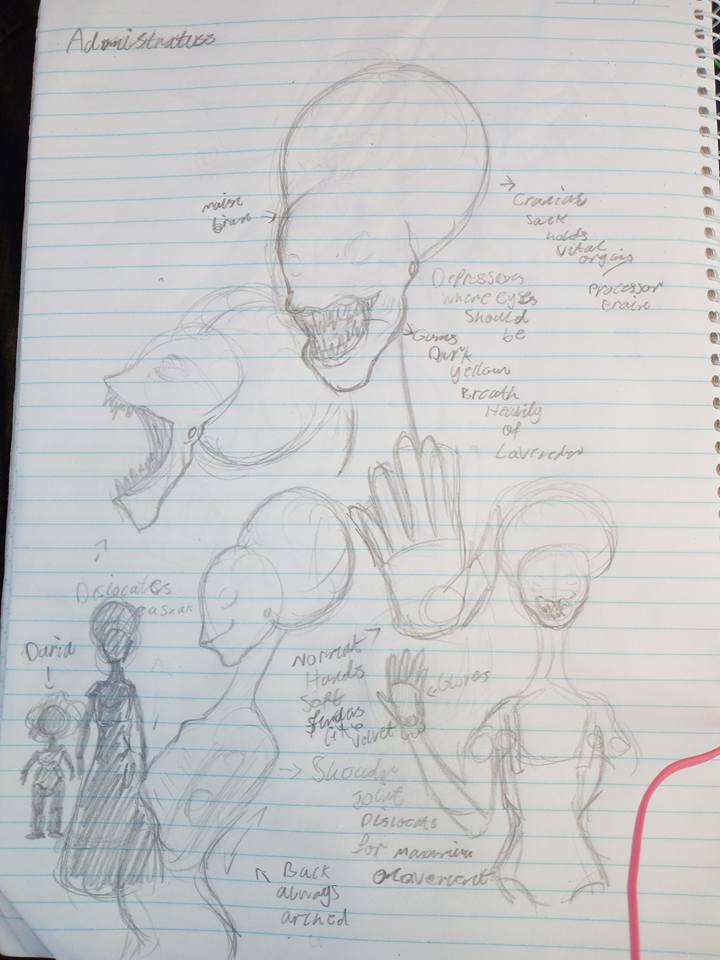 Administratuss
main
brain
Cranial
Sack
holds
vital
orgins
processor
brain
Depressions
where Eyes
Should
be
Gums
Dark
yellow
Breath
Heavily
of
Lavender
Dislocates
David
Normal
Hands
Soft
Velvet
Gloves
Shoulder
Joint
Dislocates
for maximum
movement
Back
always
arched